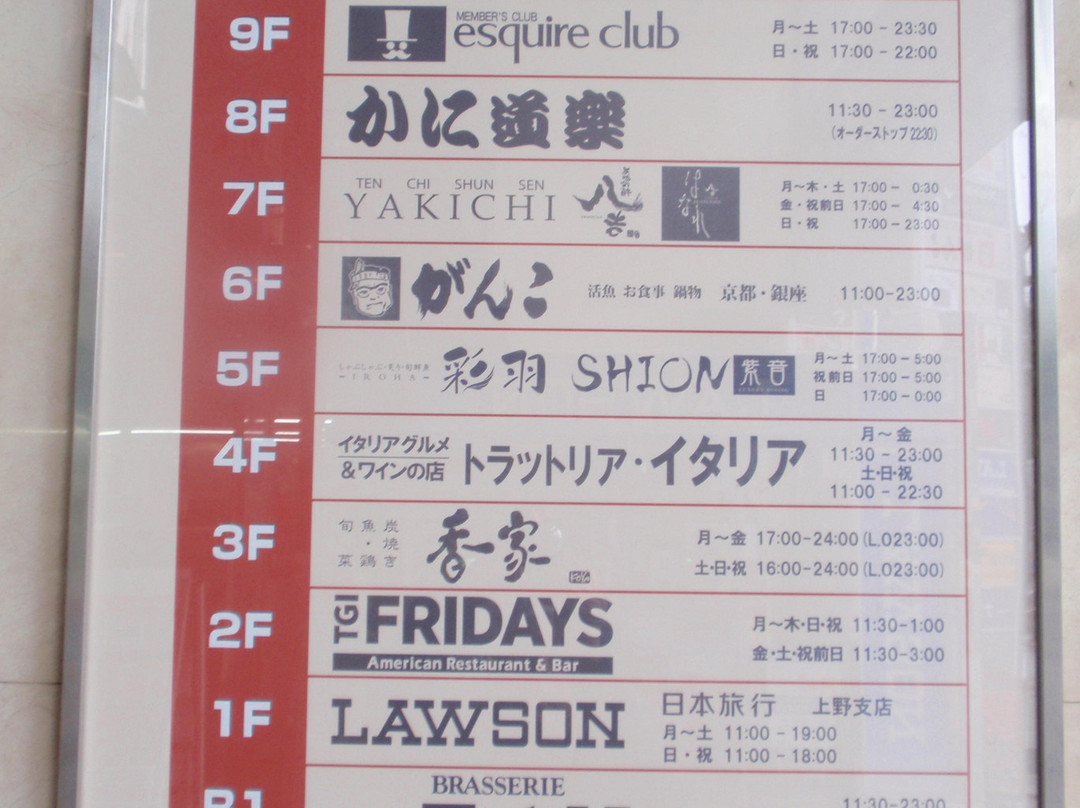 9F
MEMBER'S CLUB
esquire club
月〜土 17:00 - 23:30
日・祝 17:00 - 22:00
8F
かに道樂
11:30 - 23:00
(オーダーストップ22:30)
7F
TEN CHI SHUN SEN
YAKICHI
八吉
はなれ
月〜木・土 17:00 - 0:30
金・祝前日 17:00 - 4:30
日・祝 17:00 - 23:00
6F
がんこ
活魚 お食事 鍋物 京都・銀座 11:00-23:00
5F
IROHA
彩羽 SHION 紫音
月〜土 17:00 - 5:00
祝前日 17:00 - 5:00
日 17:00 - 0:00
4F
イタリアグルメ
&ワインの店
トラットリア・イタリア
月〜金
11:30 - 23:00
土・日・祝
11:00 - 22:30
3F
旬魚炭
・焼
菜鶏き
香家
月〜金 17:00-24:00 (L.O23:00)
土・日・祝 16:00-24:00 (L.O23:00)
2F
TGI FRIDAYS
American Restaurant & Bar
月〜木・日・祝 11:30-1:00
金・土・祝前日 11:30-3:00
1F
LAWSON
日本旅行 上野支店
月〜土 11:00 - 19:00
日・祝 11:00 - 18:00
B1
BRASSERIE
11:30-23:00